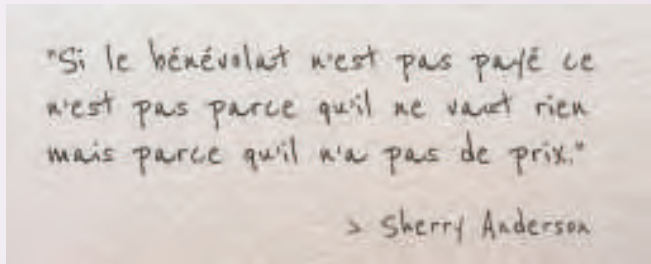 "Si le bénévolat n'est pas payé ce
n'est pas parce qu'il ne vaut rien
mais parce qu'il n'a pas de prix."
> Sherry Anderson